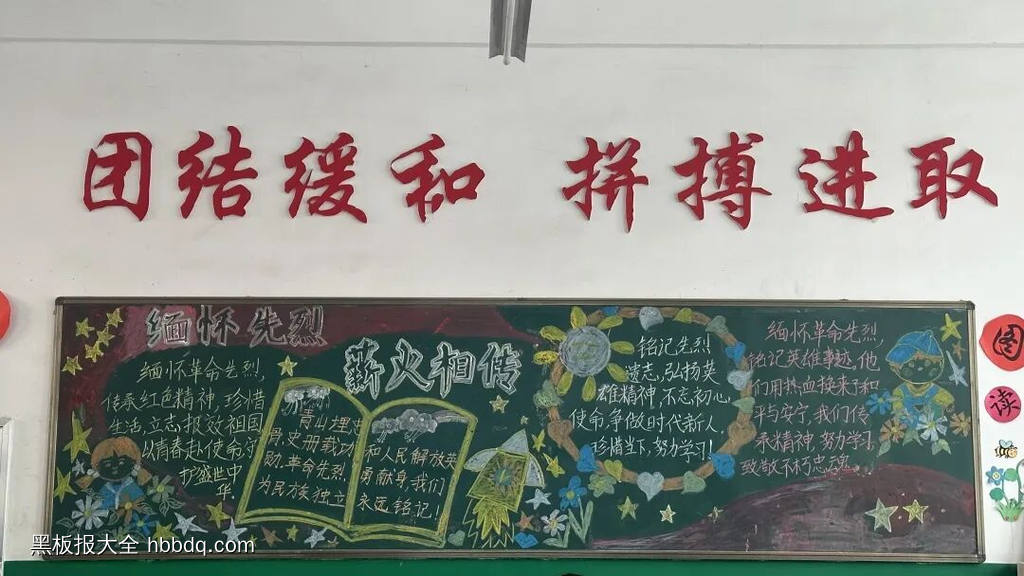 团结缓和 拼搏进取
缅怀先烈
薪火相传
缅怀革命先烈,
传承红色精神,珍惜
生活,立志报效祖国
以青春赴使命,守
护盛世中
华
青山埋忠
骨,史册载功
勋.革命先烈,
为民族独立
和人民解放英
勇献身.我们
永远铭记!
铭记先烈
遗志,弘扬英
雄精神,不忘初心,
使命,争做时代新人,
珍惜当下,努力学习!
缅怀革命先烈
铭记英雄事迹,他
们用热血换来了和
平与安宁,我们传
承精神,努力学习,
致敬不朽忠魂。
图
读
黑板报大全 hbbdq.com